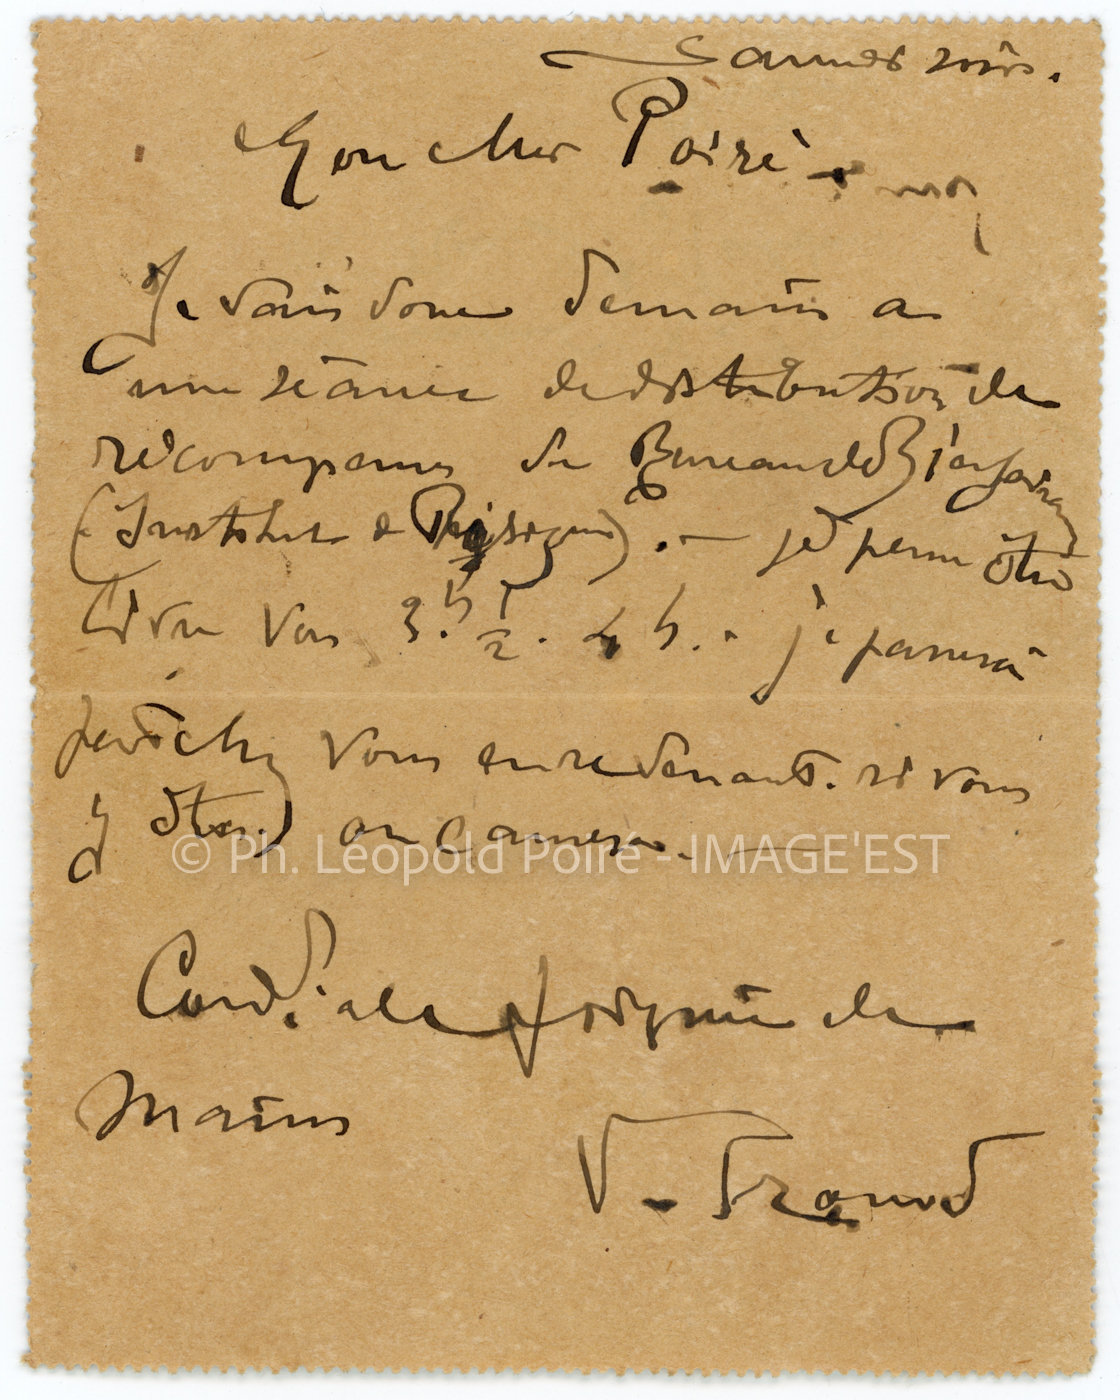 Samedi soir.
Mon cher Poiré
Je vais donc demain a
une séance de distribution de
récompenses du Bureau de Bienfaisance
(Institut de ). — je pense être
libre vers 3.h 1/2. 4 h. - je passerai
vous en revenant. si vous
y êtes
© Ph. Léopold Poiré - IMAGE'EST
Cordiale poignée de
Mains
V.